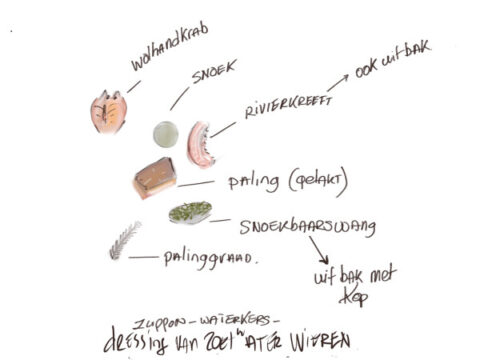 wolhandkrab
SNOEK
RIVIERKREEFT
ook uitbak
paling (gelakt)
SNOEKBAARSWANG
palinggraad.
uit bak met
kop
- WATERKERS -
dressing van zoetwater WIEREN